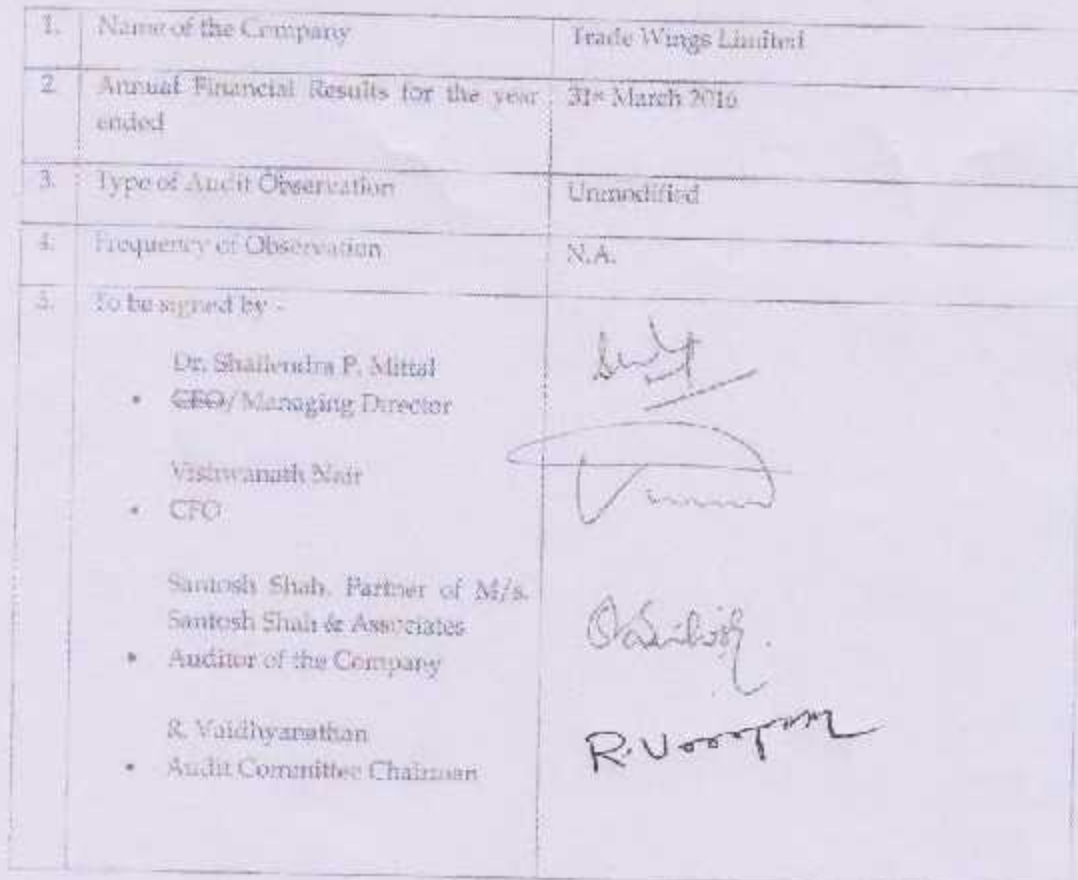 1. Name of the Company Trade Wings Limited
2. Annual Financial Results for the year 31st March 2016
ended
3. Type of Audit Observation Unmodified
4. Frequency of Observation N.A.
5. To be signed by -
Dr. Shailendra P. Mittal
• CEO/Managing Director
Vishwanath Nair
• CFO
Santosh Shah, Partner of M/s.
Santosh Shah & Associates
• Auditor of the Company
R. Vaidhyanathan
• Audit Committee Chairman